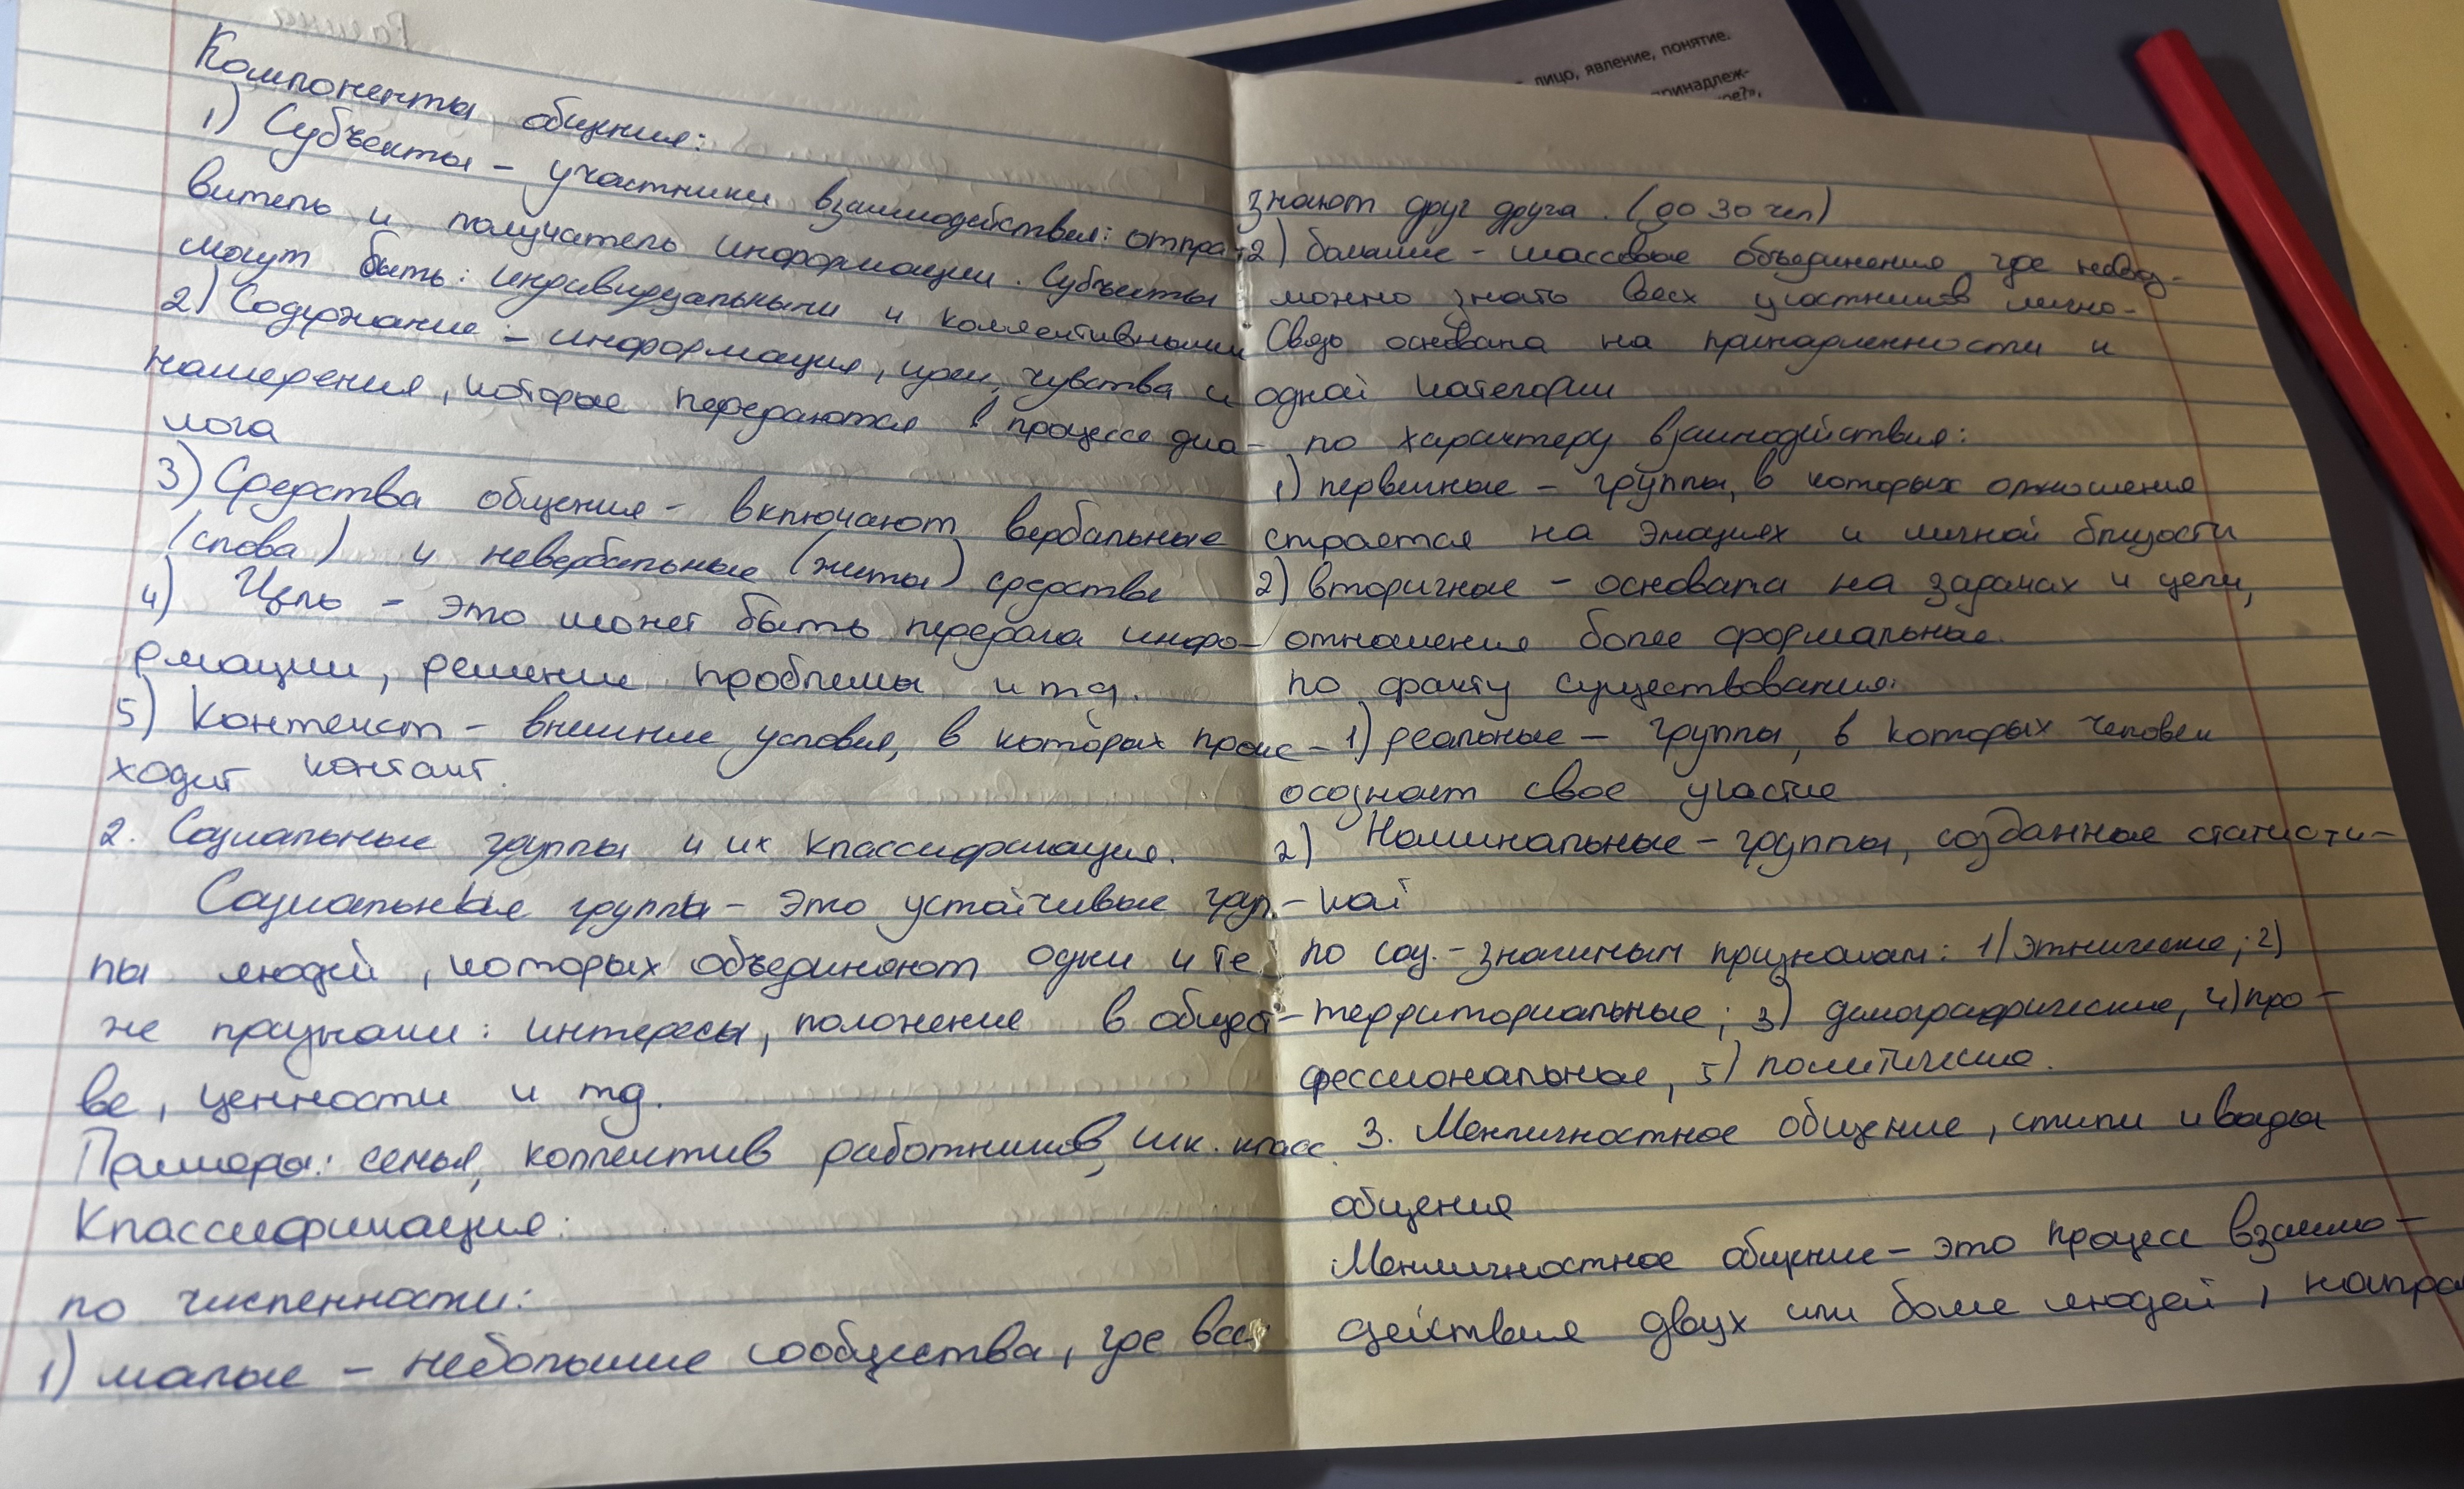 Компоненты общения:
1) Субъекты – участники взаимодействия: отпра-
витель и получатель информации. Субъекты
могут быть: индивидуальными и коллективными
2) Содержание – информация, идеи, чувства и
намерения, которые передаются в процессе диа-
лога
3) Средства общения – включают вербальные
(слова) и невербальные (житы) средства
4) Цель – это может быть передача инфо-
рмации, решение проблемы и тд.
5) Контекст – внешние условия, в которых проис-
ходит контакт.
2. Социальные группы и их классификация.
Социальные группы – это устойчивые груп-
пы людей, которых объединяют одни и те
же признаки: интересы, положение в общест-
ве, ценности и тд.
Примеры: семья, коллектив работников, шк. класс.
Классификация:
по численности:
1) малые – небольшие сообщества, где все
знают друг друга. (до 30 чел)
2) большие – массовые объединения где невоз-
можно знать всех участников лично.
Связь основана на принадленности к
одной категории
по характеру взаимодействия:
1) первичные – группы, в которых отношения
строятся на эмоциях и личной близости
2) вторичные – основана на задачах и цели,
отношения более формальные.
по факту существования:
1) реальные – группы, в которых человек
осознает свое участие
2) Номинальные – группы, созданные статисти-
кой
по соц.-значимым признакам: 1) этнические; 2)
территориальные; 3) демографические, 4) про-
фессиональные, 5) политические.
3. Межличностное общение, стили и виды
общения
Межличностное общение – это процесс взаимо-
действия двух или более людей, напра
лицо, явление, понятие.
принадлеж-
ое?»,